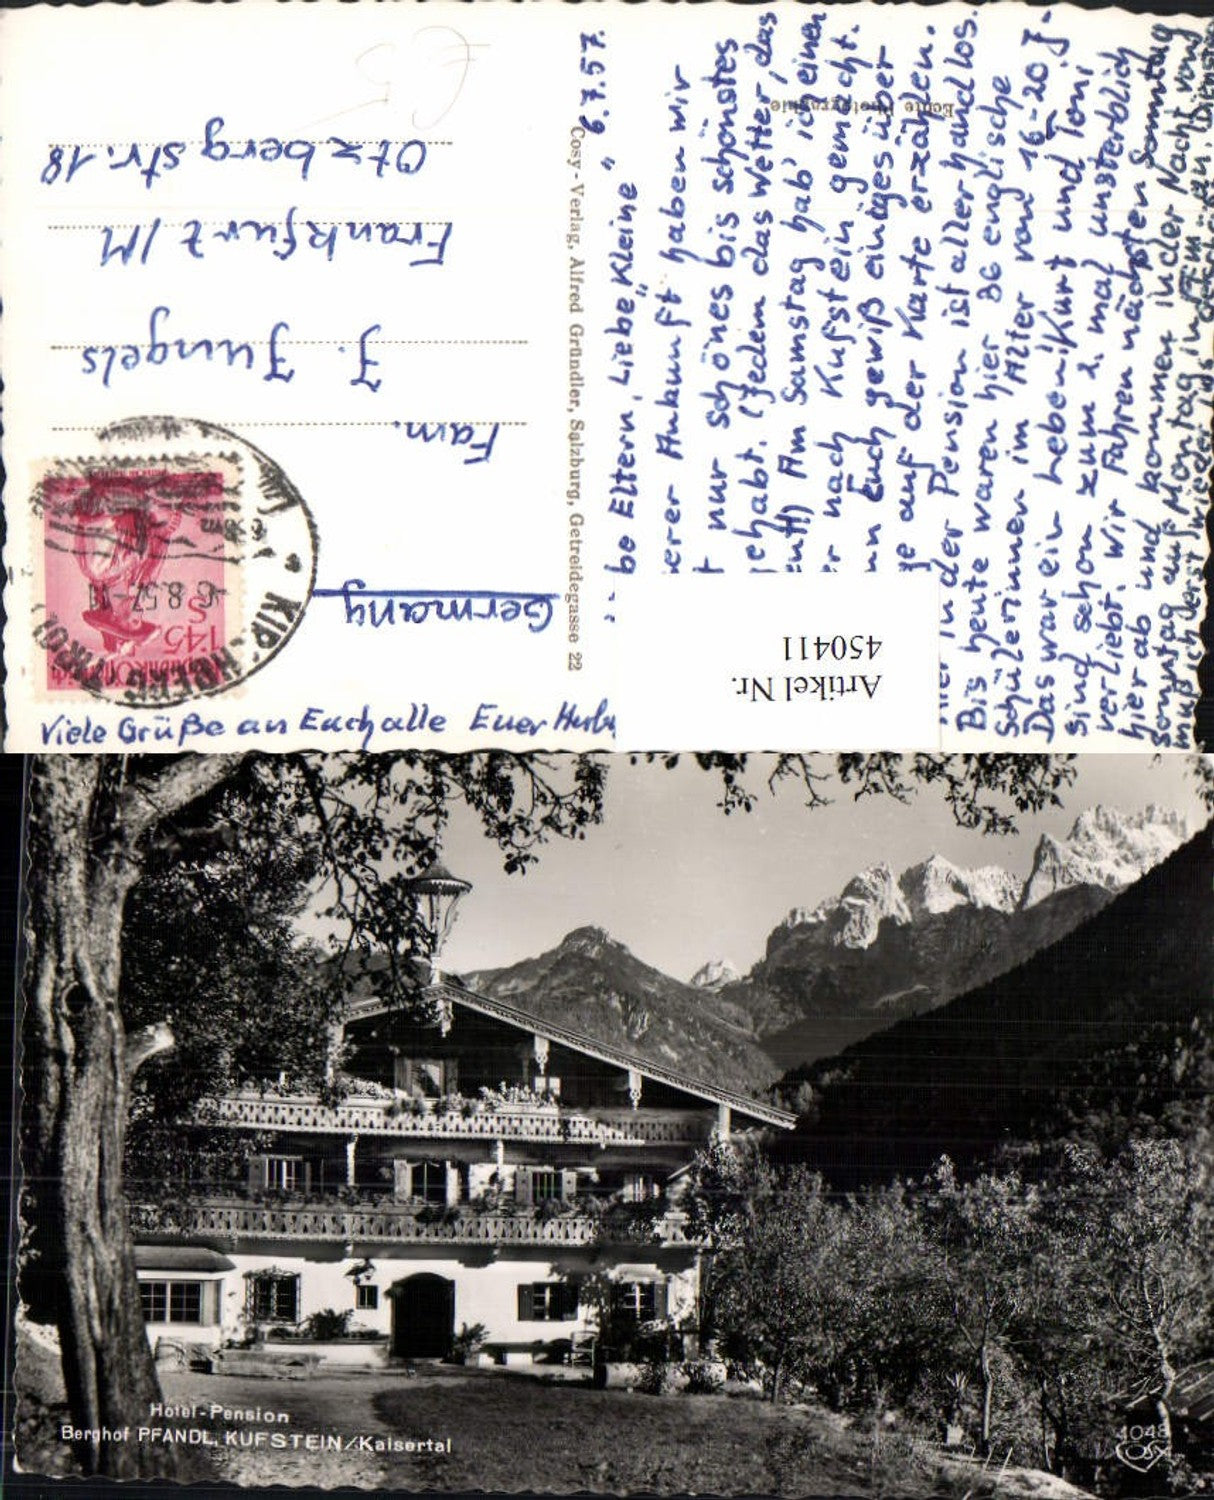 6.7.57.
be Eltern, Liebe „Kleine"
erer Ankunft haben wir
t nur schönes bis schönstes
ehabt. (Jedem das Wetter, das
Am Samstag hab' ich einen
r nach Kufstein gemacht.
nn Euch gewiß einiges über
ge auf der Karte erzählen.
Hier in der Pension ist allerhand los.
Bis heute waren hier 36 englische
Schülerinnen im Alter von 16-20 J-
Das war ein Leben! Kurt und Toni
sind schon zum 2. mal unsterblich
verliebt. Wir fahren nächsten Sonntag
hier ab und kommen in der Nacht von
Sonntag auf Montag in Ffm an.
muß ich erst wieder
Viele Grüße an Euch alle Euer
Echte Photographie
Cosy-Verlag, Alfred Gründler, Salzburg, Getreidegasse 22
Fam.
J. Jungels
Frankfurt/M
Otzbergstr. 18
Germany
KIRCHBERG
-6.8.57-11
S 1'45
Artikel Nr.
450411
Hotel-Pension
Berghof PFANDL, KUFSTEIN/Kaisertal
1048
COSY